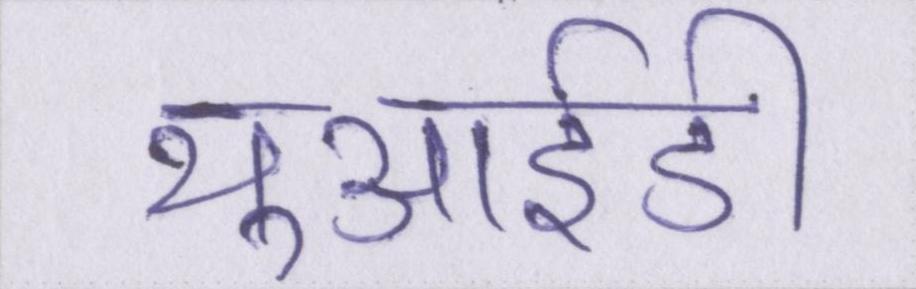 यूआईडी